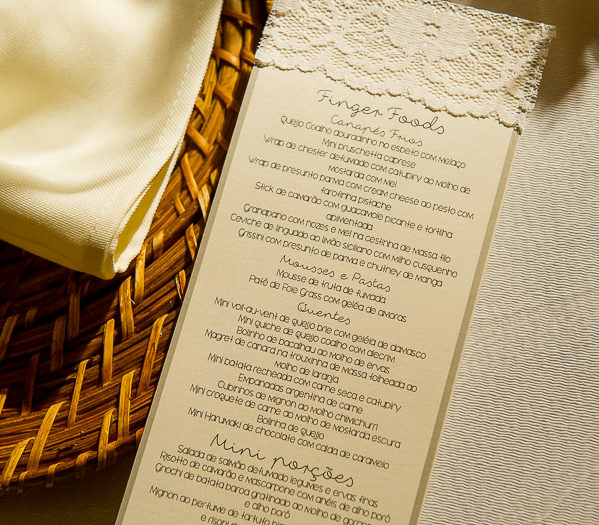 Finger Foods
Canapés Frios
Queijo Coalho douradinho no espeto com Melaço
Mini bruschetta caprese
Wrap de chester defumado com catupiry ao molho de
Mostarda com Mel
Wrap de presunto parma com cream cheese ao pesto com
farofinha pistache
Stick de camarão com guacamole picante e tortilha
apimentada
Granapano com nozes e Mel na cestinha de Massa filo
Ceviche de linguado ao limão siciliano com Milho cusquenho
Grissini com presunto de parma e chutney de Manga
Mousses e Pastas
Mousse de truta defumada
Patê de Foie Grass com geléia de amoras
Quentes
Mini voil-au-vent de queijo brie com geléia de damasco
Mini quiche de queijo coalho com alecrim
Bolinho de bacalhau ao Molho de ervas
Magret de canard na trouxinha de Massa folheada ao
Molho de laranja
Mini batata recheada com carne seca e catupiry
Empanadas argentina de carne
Cubinhos de Mignon ao Molho chimichurri
Mini croquete de carne ao Molho de Mostarda escura
Bolinha de queijo
Mini Harumaki de chocolate com calda de caramelo
Mini porções
Salada de salmão defumado leguMes e ervas finas
Risotto de camarão e mascarpone com anéis de alho poró
Gnochi de batata baroa gratinado ao molho de
e alho poró
Mignon ao perfume de tartufo